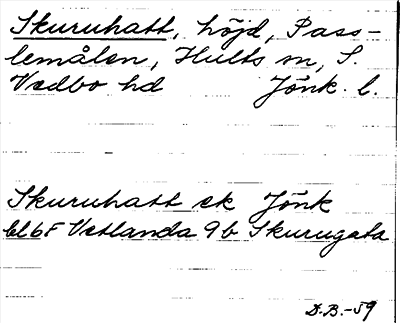 Skuruhatt, höjd, Pass-
lemålen, Hults sn, S.
Vedbo hd Jönk. l.
Skuruhatt ek Jönk
bl 6F Vetlanda 9b Skurugata
D.B.-59